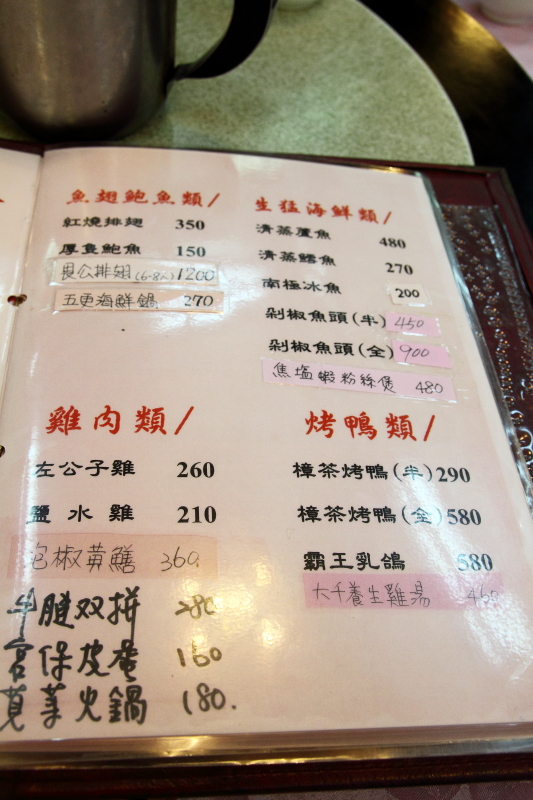 魚翅鮑魚類/
紅燒排翅 350
厚隻鮑魚 150
貝公排翅(6-8人)1200
五更海鮮鍋 270
生猛海鮮類/
清蒸蘆魚 480
清蒸鱈魚 270
南極冰魚 200
剁椒魚頭(半) 450
剁椒魚頭(全) 900
焦塩蝦粉絲煲 480
雞肉類/
左公子雞 260
鹽水雞 210
泡椒黃鱔 360.
牛腱双拼 280
宮保皮蛋 160
莧菜火鍋 180.
烤鴨類/
樟茶烤鴨(半)290
樟茶烤鴨(全)580
霸王乳鴿 580
大千養生雞湯 460